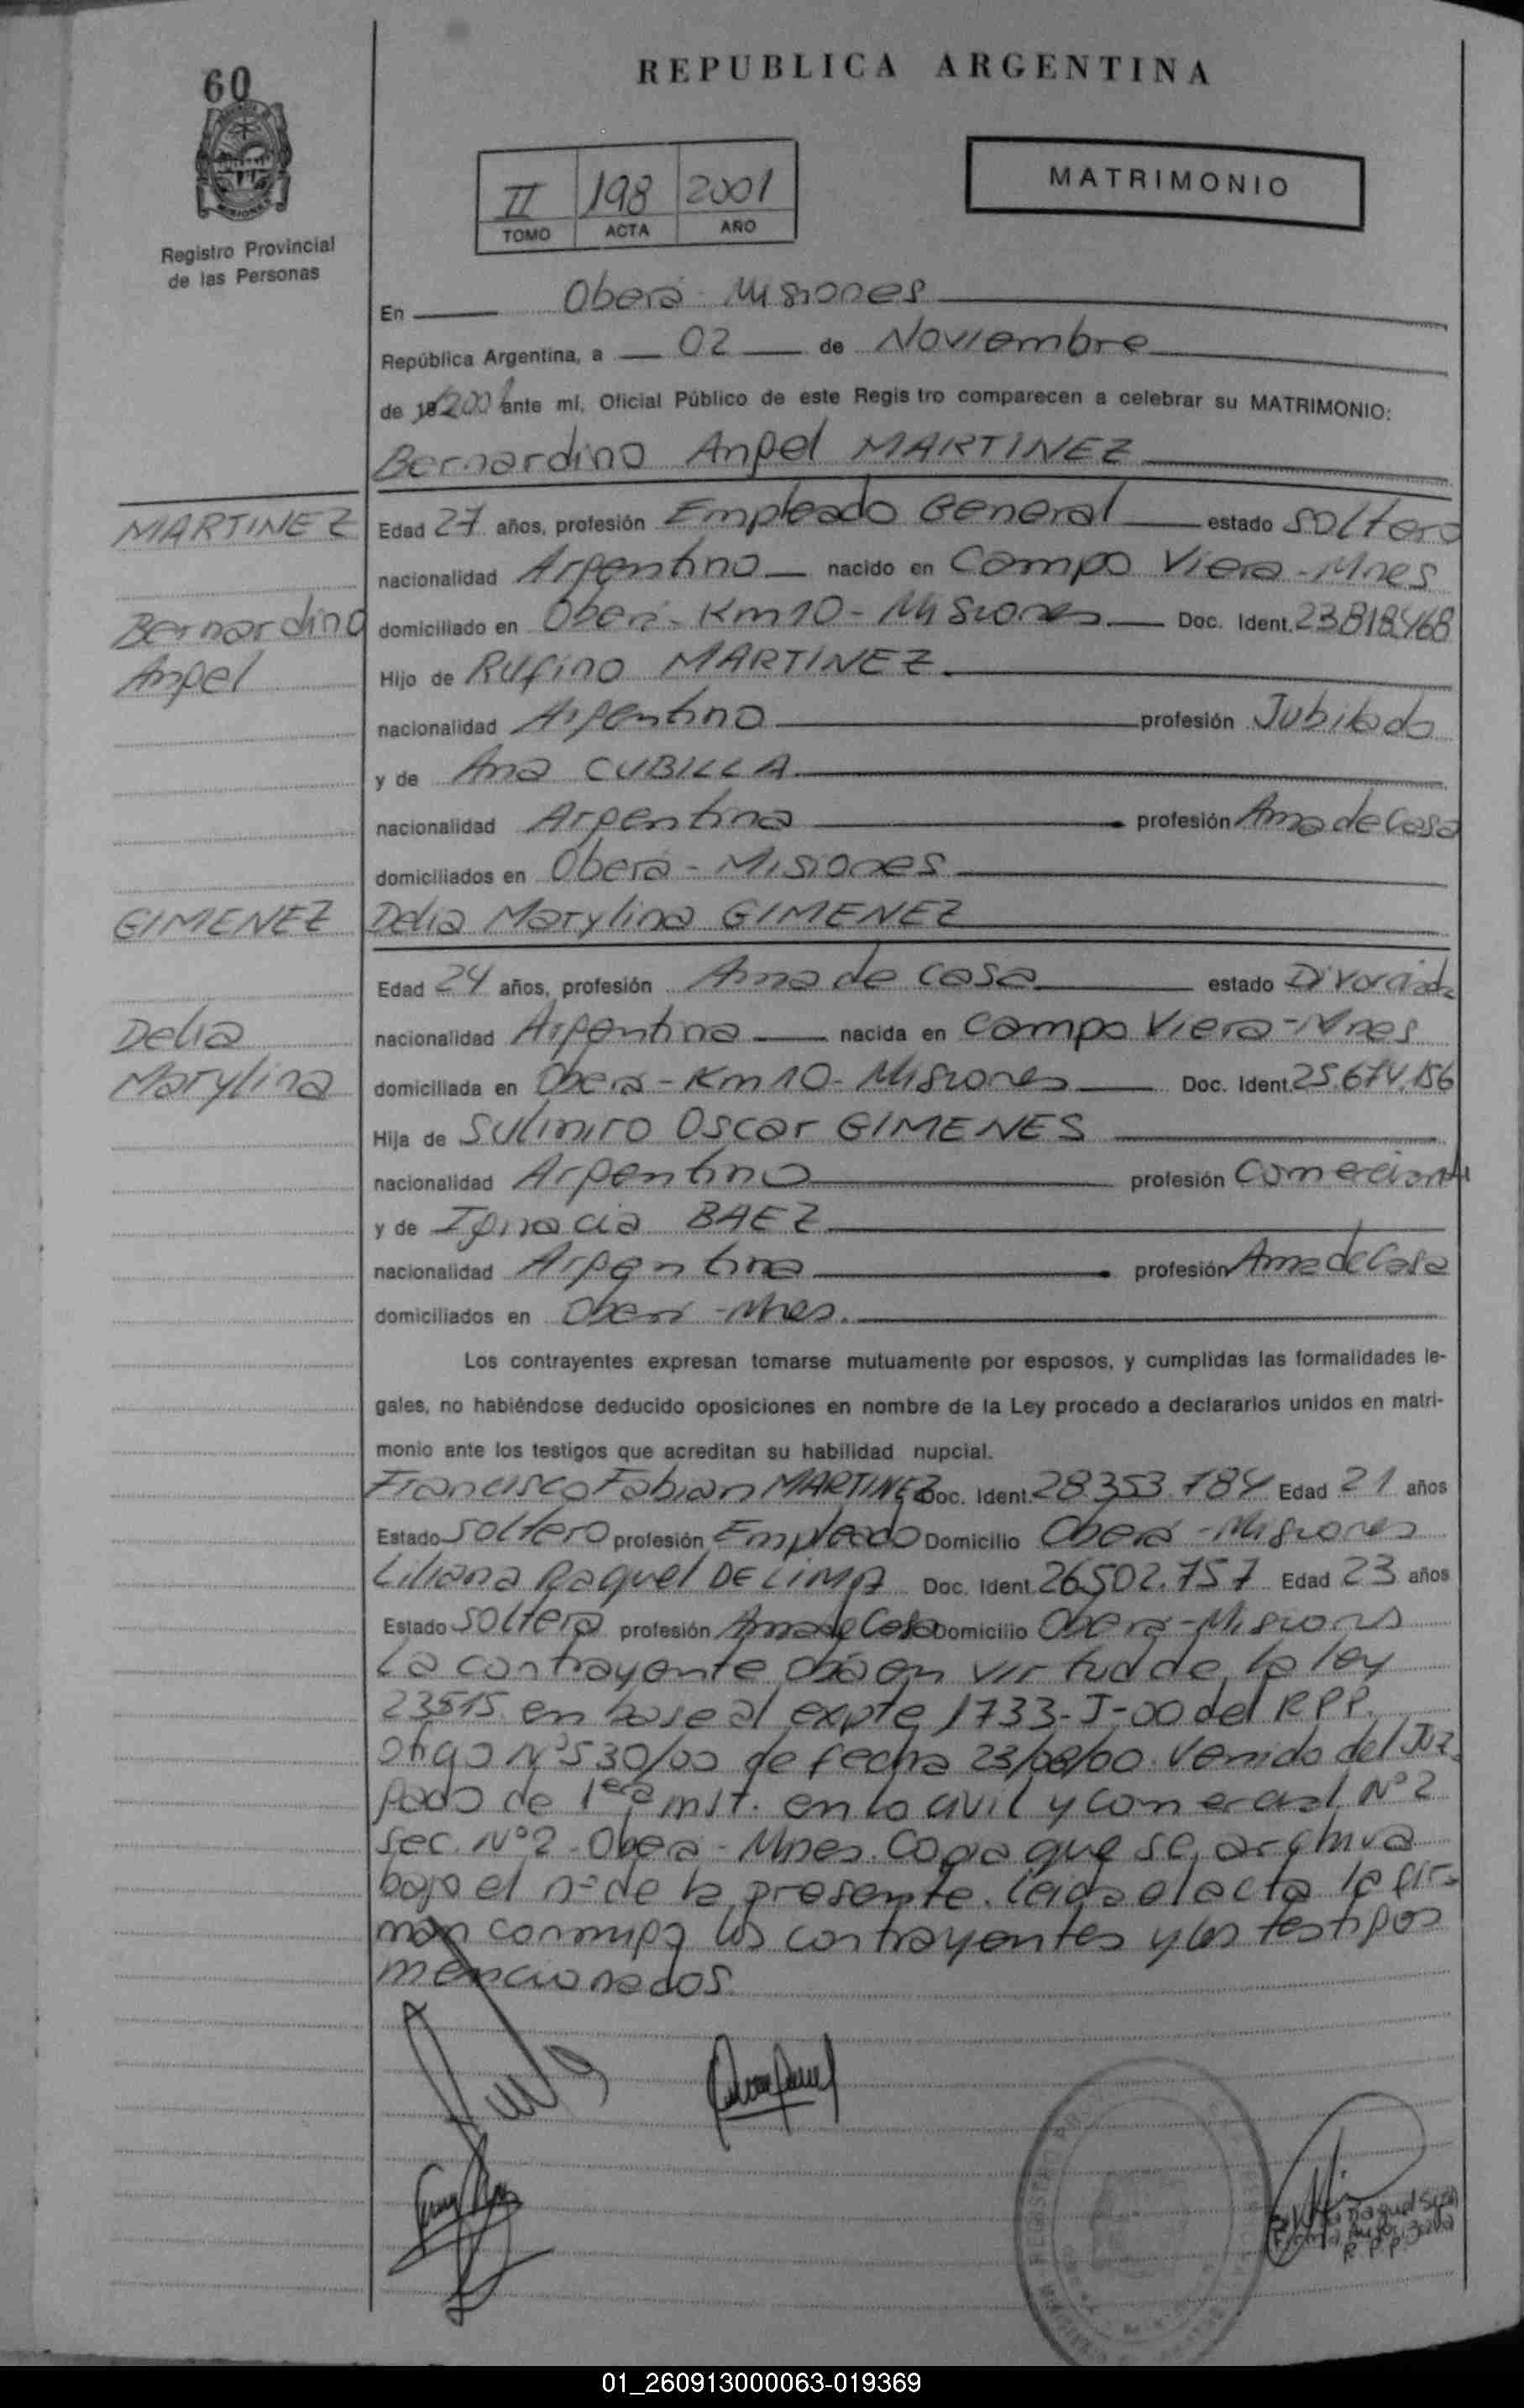 60
REPUBLICA ARGENTINA
MATRIMONIO
II 198 2001
TOMO ACTA AÑO
Registro Provincial
de las Personas
En Oberá - Misiones
República Argentina, a 02 de Noviembre
de 2001 ante mí, Oficial Público de este Regis tro comparecen a celebrar su MATRIMONIO:
Bernardino Angel MARTINEZ
MARTINEZ
Edad 27 años, profesión Empleado General estado Soltero
nacionalidad Argentino nacido en Campo Viera - Mnes
Bernardino
domiciliado en Oberá - Km 10 - Misiones Doc. Ident. 23.818.468
Angel
Hijo de Rufino MARTINEZ
nacionalidad Argentino profesión Jubilado
y de Ana CUBILLA
nacionalidad Argentina profesión Ama de Casa
domiciliados en Oberá - Misiones
GIMENEZ
Delia Marylina GIMENEZ
Edad 24 años, profesión Ama de Casa estado Divorciada
Delia
nacionalidad Argentina nacida en Campo Viera - Mnes
Marylina
domiciliada en Oberá - Km 10 - Misiones Doc. Ident. 25.674.156
Hija de Sulimiro Oscar GIMENES
nacionalidad Argentino profesión Comerciante
y de Ignacia BAEZ
nacionalidad Argentina profesión Ama de Casa
domiciliados en Oberá - Mnes.
Los contrayentes expresan tomarse mutuamente por esposos, y cumplidas las formalidades le-
gales, no habiéndose deducido oposiciones en nombre de la Ley procedo a declararlos unidos en matri-
monio ante los testigos que acreditan su habilidad nupcial.
Francisco Fabian MARTINEZ Doc. Ident. 28.353.784 Edad 21 años
Estado Soltero profesión Empleado Domicilio Oberá - Misiones
Liliana Raquel DE LIMA Doc. Ident. 26.502.757 Edad 23 años
Estado Soltera profesión Ama de Casa Domicilio Oberá - Misiones
La contrayente en virtud de la ley
23515 en base al expte 1733-J-00 del RPP.
Oficio Nº 530/00 de fecha 23/08/00. Venido del Juz
gado de 1era inst. en lo civil y comercial Nº 2
Sec. Nº 2 - Oberá - Mnes. Copia que se archiva
bajo el nº de la presente. Leida el acta la fir-
man conmigo los contrayentes y los testigos
mencionados.
Raquel
Firma Autorizada
R.P.P.
01_260913000063-019369